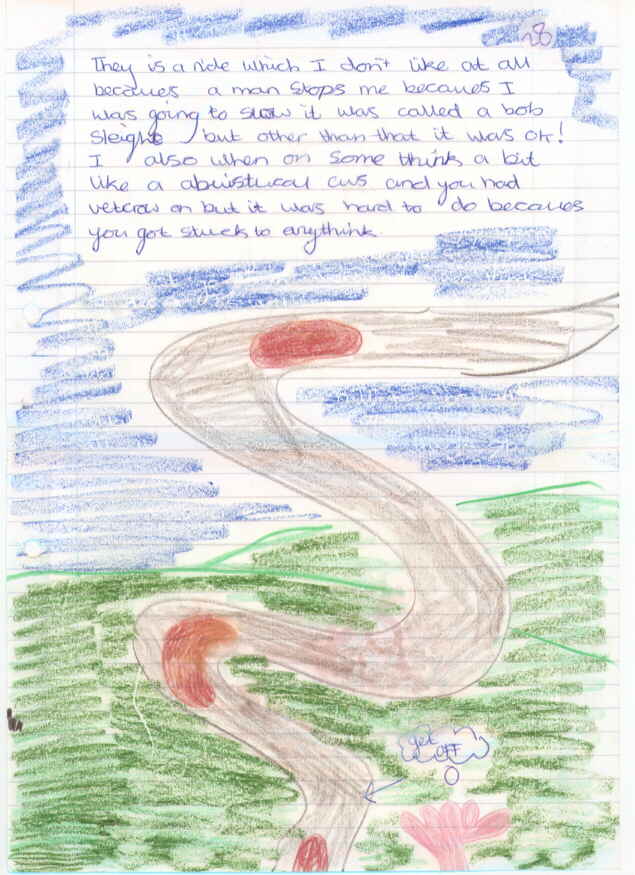 28
They is a ride which I don't like at all
becaues a man stops me becaues I
was going to slow it was called a bob
sleighe but other than that it was ok!
I also when on some think a bit
like a abuistucal cus and you had
velcrow on but it was hard to do becaues
you got stuck to anythink.
get
OFF